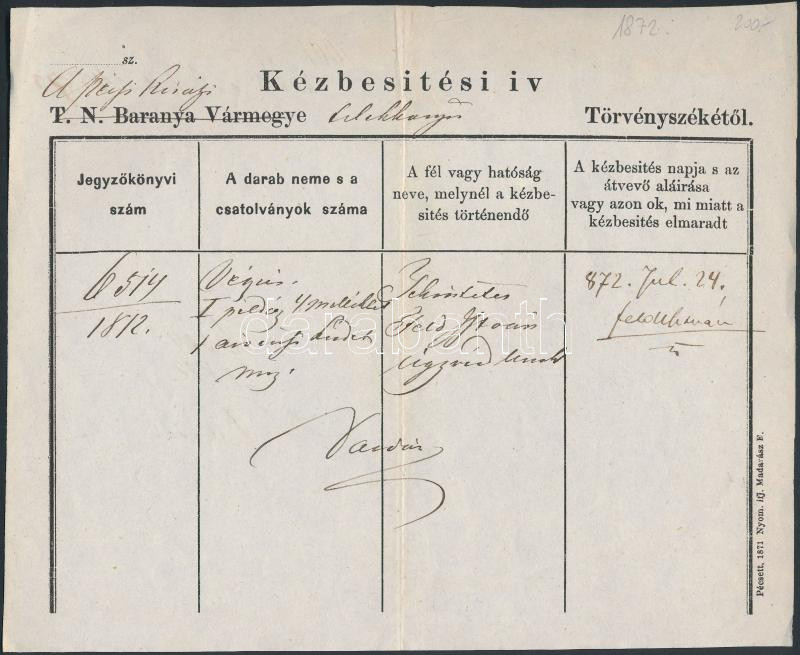 1872. 200.-
sz.
A pécsi Királyi
Kézbesitési iv
T. N. Baranya Vármegye
Törvényszékétől.
Jegyzőkönyvi szám
A darab neme s a csatolványok száma
A fél vagy hatóság neve, melynél a kézbe-sités történendő
A kézbesités napja s az átvevő aláirása vagy azon ok, mi miatt a kézbesités elmaradt
6514
1872.
Végzés.
Tekintetes
Feld István
ügyvéd
872. Jul. 24.
Feld István
darabanth
Pécsett, 1871 Nyom. ifj. Madarász E.